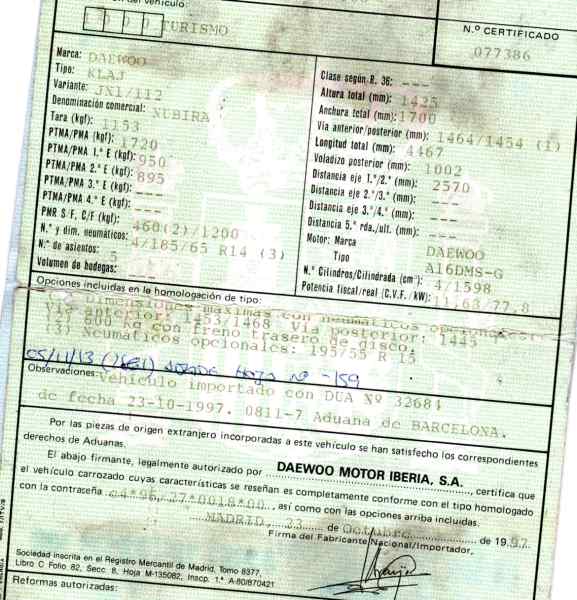 del vehículo:
N.º CERTIFICADO
077386
TURISMO
Marca: DAEWOO
Tipo: KLAJ
Variante: JX1/112
Denominación comercial: NUBIRA
Tara (kgf): 1153
PTMA/PMA (kgf): 1720
PTMA/PMA 1.º E (kgf): 950
PTMA/PMA 2.º E (kgf): 895
PTMA/PMA 3.º E (kgf): ---
PTMA/PMA 4.º E (kgf): ---
PMR S/F, C/F (kgf): 460(2)/1200
N.º y dim. neumáticos: 4/185/65 R14 (3)
N.º de asientos: 5
Volumen de bodegas: ---
Clase según R. 36: ---
Altura total (mm): 1425
Anchura total (mm): 1700
Vía anterior/posterior (mm): 1464/1454 (1)
Longitud total (mm): 4467
Voladizo posterior (mm): 1002
Distancia eje 1.º/2.º (mm): 2570
Distancia eje 2.º/3.º (mm): ---
Distancia eje 3.º/4.º (mm): ---
Distancia 5.ª rda./ult. (mm): ---
Motor: Marca DAEWOO
Tipo A16DMS-G
N.º Cilindros/Cilindrada (cm³): 4/1598
Potencia fiscal/real (C.V.F. / kW): 11,63/77,8
Opciones incluidas en la homologación de tipo:
Dimensiones máximas con neumáticos opcionales:
Vía anterior: 1453/1468 Vía posterior: 1445
600 kg con freno trasero de disco.
(3) Neumáticos opcionales: 195/55 R 15
05/11/13 HOJA Nº -159
Observaciones:
Vehículo importado con DUA Nº 32684
de fecha 23-10-1997. 0811-7 Aduana de BARCELONA.
Por las piezas de origen extranjero incorporadas a este vehículo se han satisfecho los correspondientes
derechos de Aduanas.
El abajo firmante, legalmente autorizado por DAEWOO MOTOR IBERIA, S.A., certifica que
el vehículo carrozado cuyas características se reseñan es completamente conforme con el tipo homologado
con la contraseña e4*96/27*0018*00, así como con las opciones arriba incluidas.
MADRID, 23 de Octubre de 1997
Firma del Fabricante Nacional/Importador,
Sociedad inscrita en el Registro Mercantil de Madrid, Tomo 8377,
Libro C Folio 82, Secc. 8, Hoja M-135082, Inscp. 1.ª A-80/870421
Reformas autorizadas: